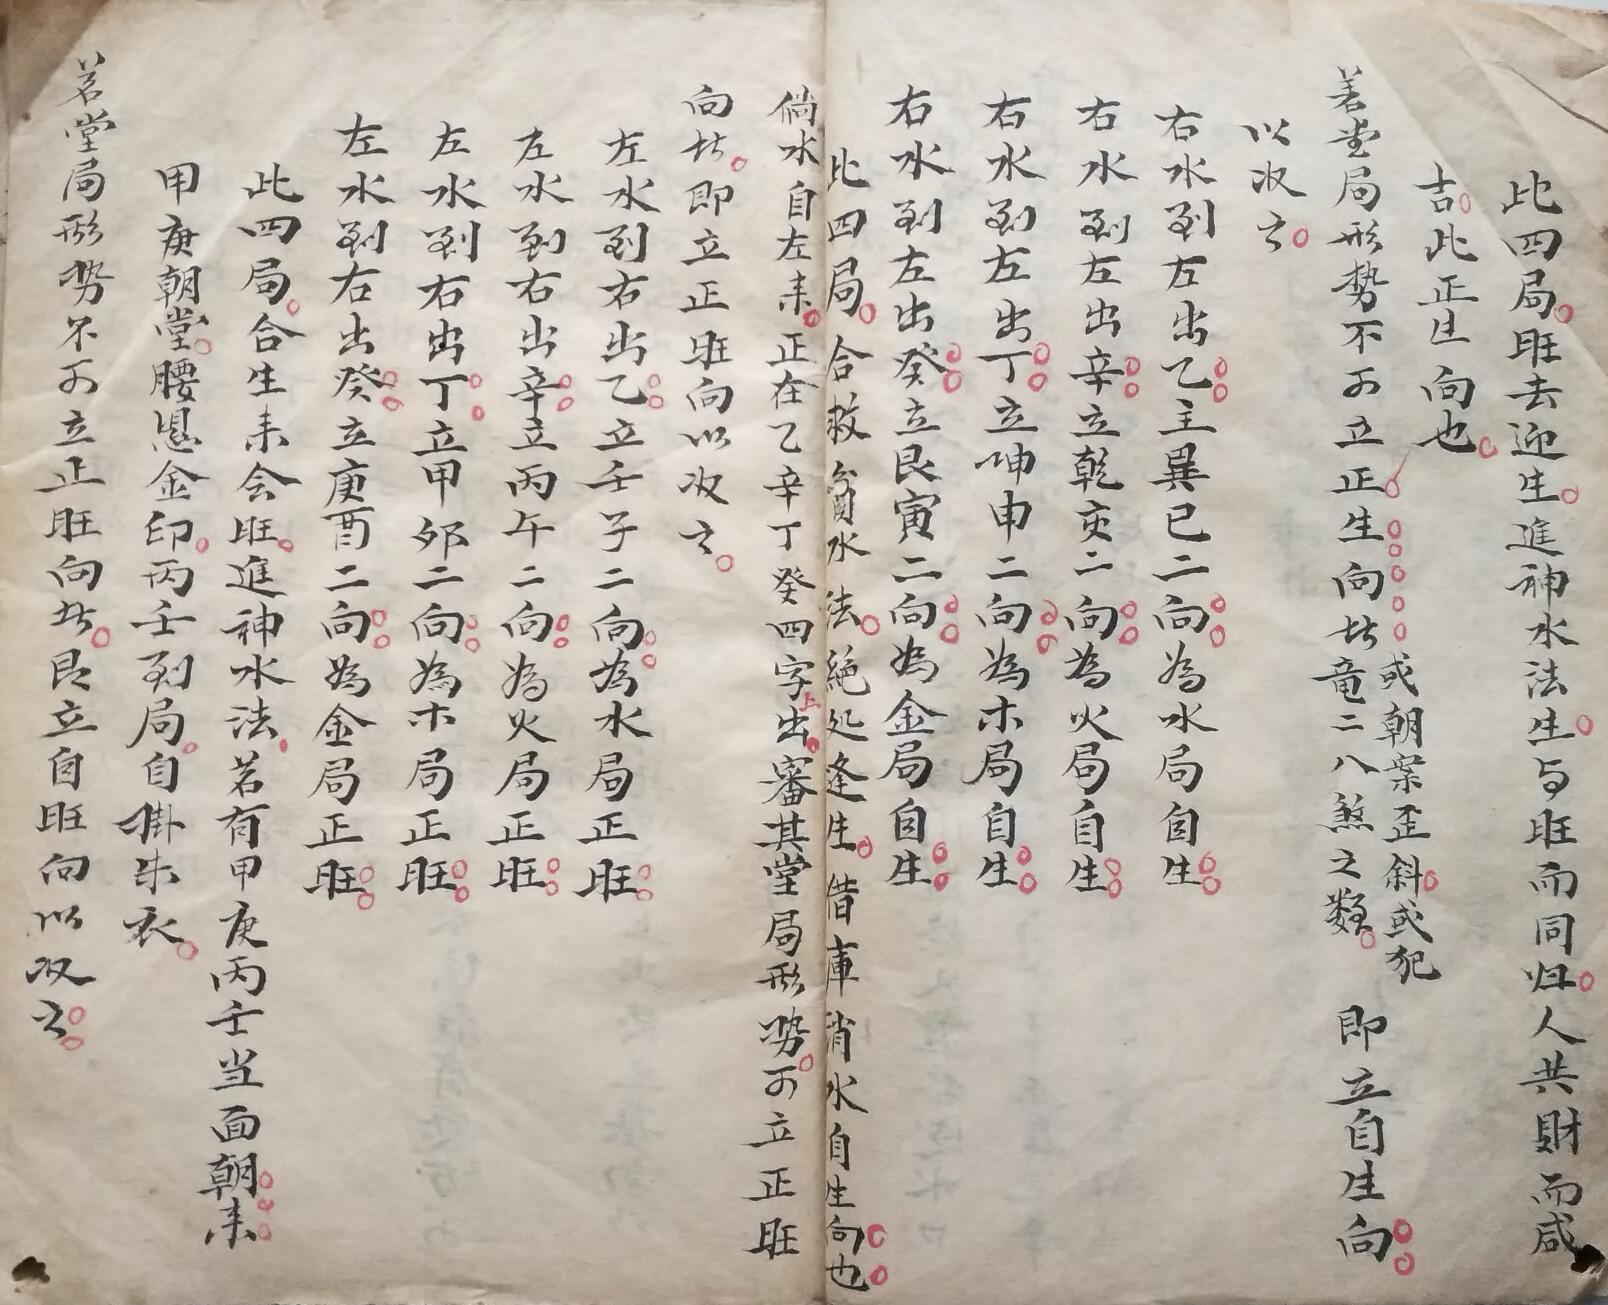 此四局旺去迎生進神水法生与旺而同归人共財而咸
吉此正生向也
若堂局形势不可立正生向者或朝案歪斜或犯竜二八煞之類即立自生向
以收之
右水到左出乙立巽巳二向為水局自生
右水到左出辛立乾亥二向為火局自生
右水到左出丁立坤申二向為木局自生
右水到左出癸立艮寅二向為金局自生
此四局合救貧水法絕処逢生借庫消水自生向也
倘水自左来正在乙辛丁癸四字上出審其堂局形势可立正旺
向者即立正旺向以收之
左水到右出乙立壬子二向為水局正旺
左水到右出辛立丙午二向為火局正旺
左水到右出丁立甲卯二向為木局正旺
左水到右出癸立庚酉二向為金局正旺
此四局合生来会旺進神水法若有甲庚丙壬当面朝来
甲庚朝堂腰悬金印丙壬到局自掛朱衣
若堂局形势不可立正旺向者即立自旺向以收之